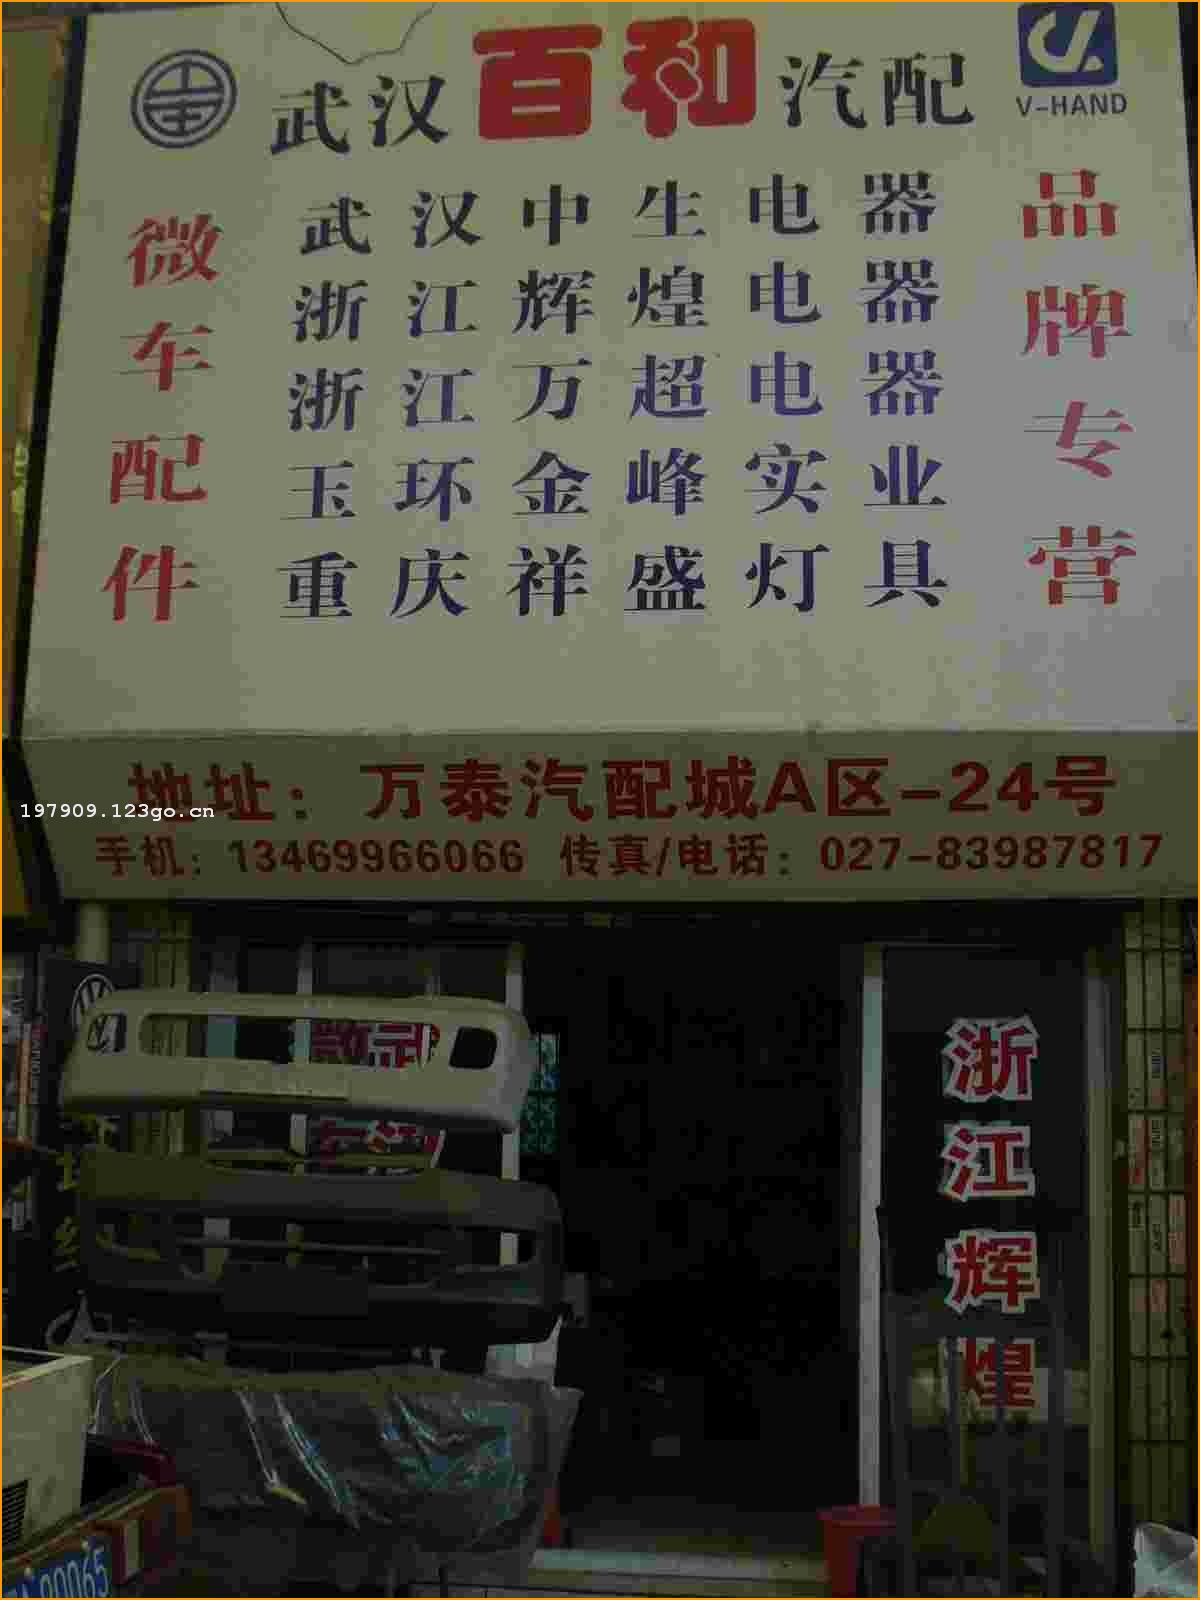 武汉百和汽配
V-HAND
微车配件
武汉中生电器
浙江辉煌电器
浙江万超电器
玉环金峰实业
重庆祥盛灯具
品牌专营
地址：万泰汽配城A区-24号
197909.123go.cn
手机：13469966066 传真/电话：027-83987817
浙江辉煌